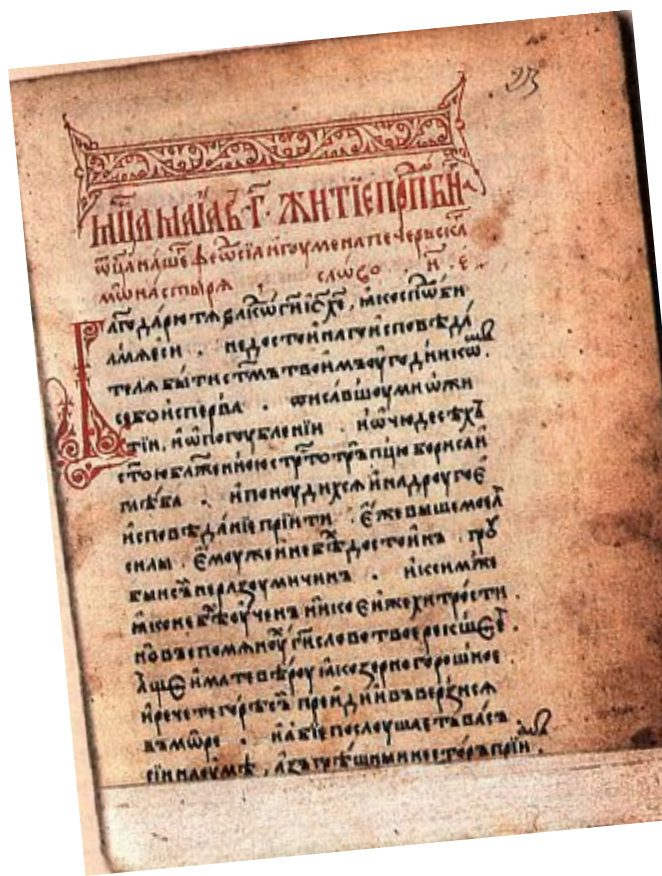 мц҃а маїа въ г҃. житїе прпⷣбнⷢ
ѿца нашеⷢ҇ ѳеѡⷣсїа игоумена печерьскаⷢ
мѡнастырѧ, слѡво н҃. е
Блг҃одарю тѧ влⷣко гⷭ҇и іс҃ хе҃, ꙗко сподоби
лъ мѧ еси. недостоинаго исповѣда
телѧ быти ст҃мъ твоимъ оугодникѡ
се бо исперва. ѡписавшоу ми ѡ жи
тїи, и ѡ погоублении. и ѡ чюдесѣхъ
ст҃ою блаженною стрⷭ҇тотрьпцю бориса и
глѣба. и понудихсѧ и на дроугое
исповѣданїе прїити. еже выше моеѧ
силы. емоу же и не бѣ достоинъ. гроу
бъ и неразоумиченъ. и к симъ же
ꙗко не бѣ оученъ никоеи же хитрости
но въспомѧноухъ гⷭ҇и слово твое рекшеⷷ.
аще имате вѣроу ꙗко зерно горошное
и речете горѣ сеи преиди и въверзисѧ
въ море. и абїе послоушаеть васъ
сїи на оумѣ, азъ грѣшныи несторъ прїи